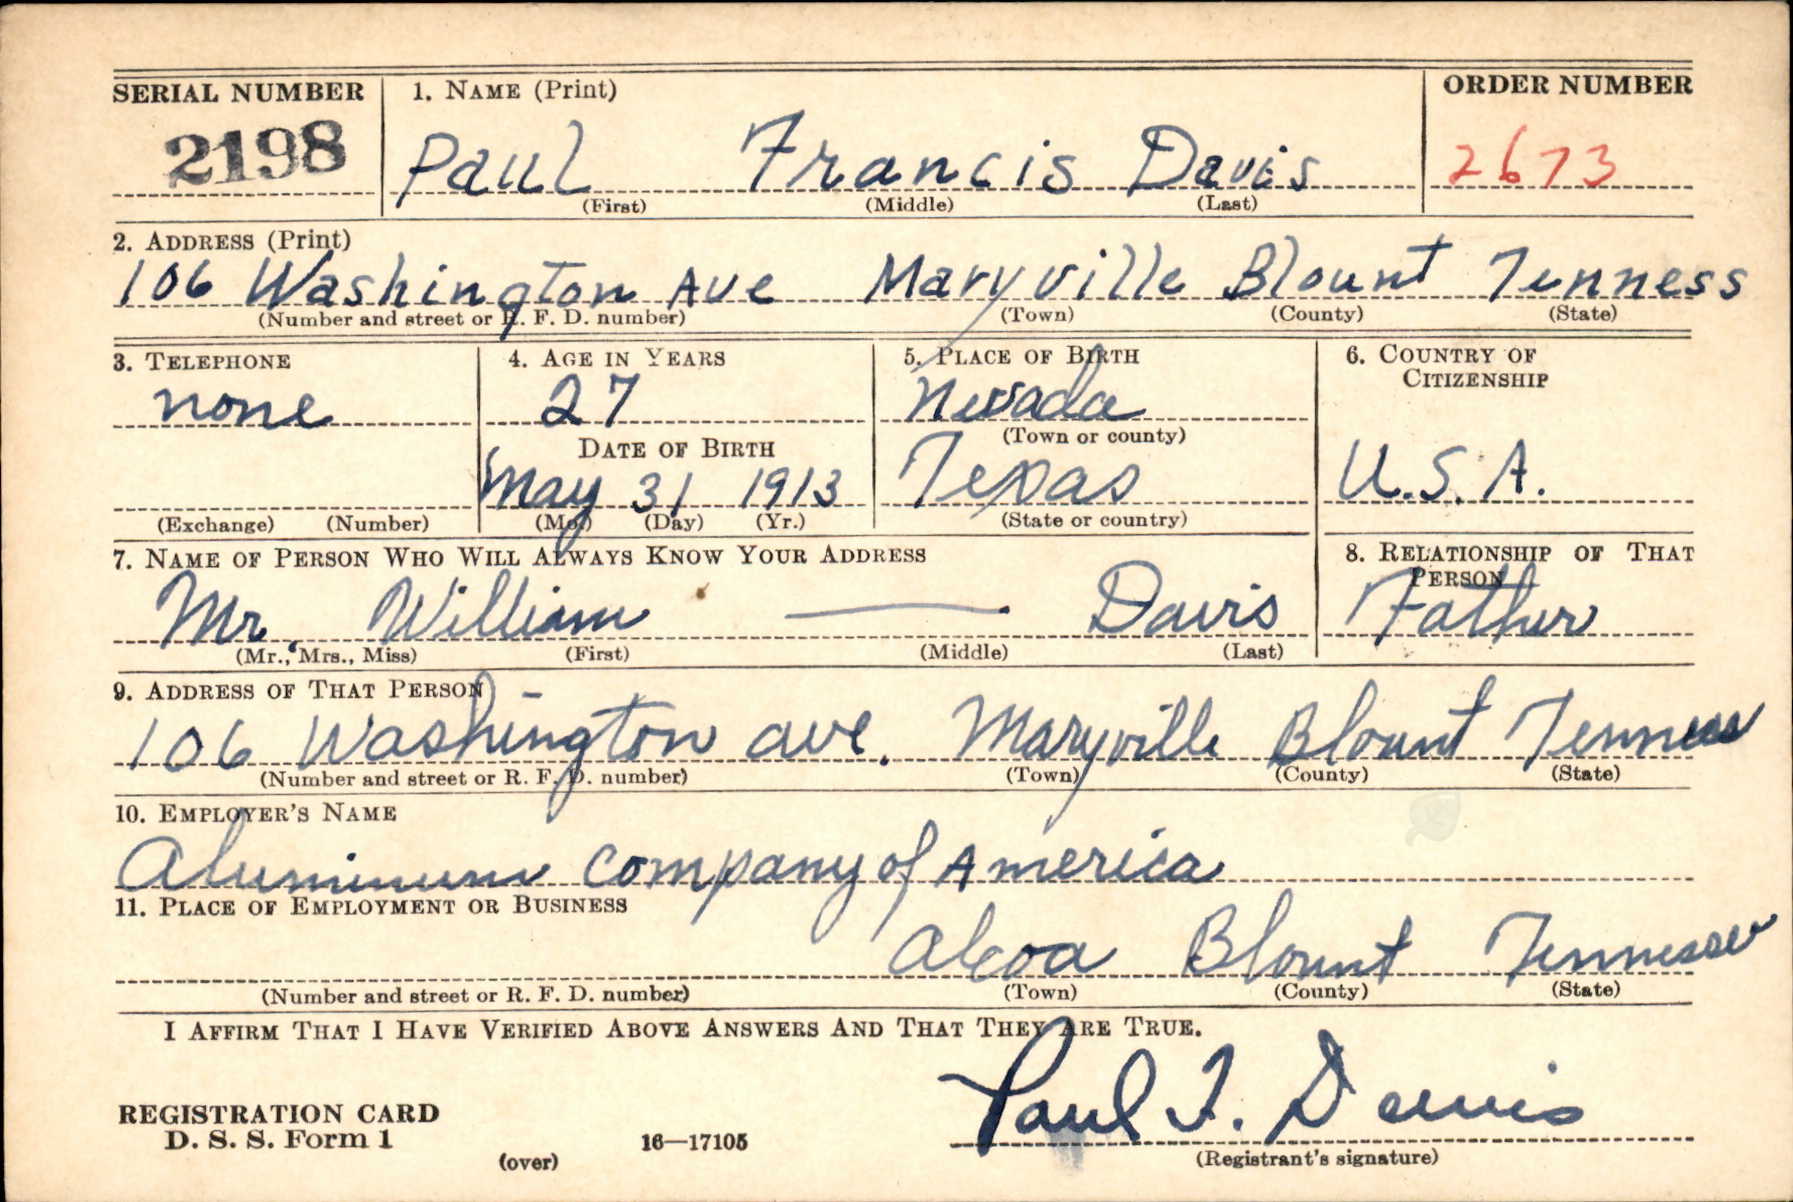 SERIAL NUMBER 1. NAME (Print) ORDER NUMBER
2198 Paul Francis Davis 2673
(First) (Middle) (Last)
2. ADDRESS (Print)
106 Washington Ave Maryville Blount Tenness
(Number and street or R. F. D. number) (Town) (County) (State)
3. TELEPHONE 4. AGE IN YEARS 5. PLACE OF BIRTH 6. COUNTRY OF
CITIZENSHIP
none 27 Nevada
DATE OF BIRTH (Town or county)
May 31 1913 Texas U.S.A.
(Exchange) (Number) (Mo.) (Day) (Yr.) (State or country)
7. NAME OF PERSON WHO WILL ALWAYS KNOW YOUR ADDRESS 8. RELATIONSHIP OF THAT
PERSON
Mr. William — Davis Father
(Mr., Mrs., Miss) (First) (Middle) (Last)
9. ADDRESS OF THAT PERSON
106 Washington ave. Maryville Blount Tennessee
(Number and street or R. F. D. number) (Town) (County) (State)
10. EMPLOYER'S NAME
Aluminum Company of America
11. PLACE OF EMPLOYMENT OR BUSINESS
Alcoa Blount Tennessee
(Number and street or R. F. D. number) (Town) (County) (State)
I AFFIRM THAT I HAVE VERIFIED ABOVE ANSWERS AND THAT THEY ARE TRUE.
Paul F. Davis
REGISTRATION CARD
D. S. S. Form 1 16—17105
(over) (Registrant's signature)